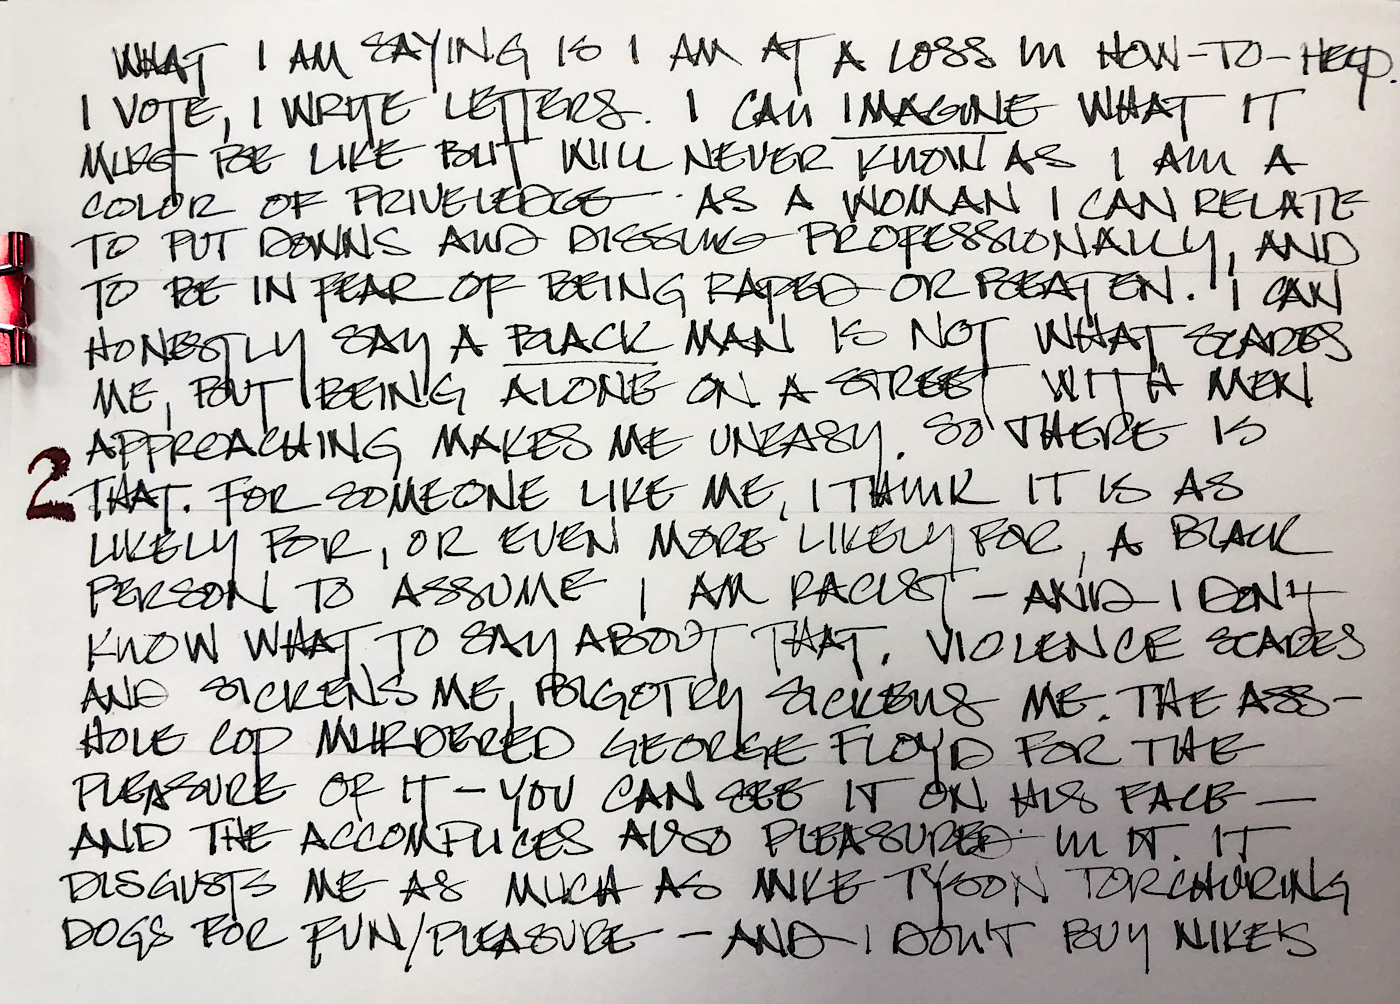 WHAT I AM SAYING IS I AM AT A LOSS IN HOW-TO-HELP.
I VOTE, I WRITE LETTERS. I CAN IMAGINE WHAT IT
MUST BE LIKE BUT WILL NEVER KNOW AS I AM A
COLOR OF PRIVELEDGE. AS A WOMAN I CAN RELATE
TO PUT DOWNS AND DISSING PROFESSIONALLY, AND
TO BE IN FEAR OF BEING RAPED OR BEATEN. I CAN
HONESTLY SAY A BLACK MAN IS NOT WHAT SCARES
ME, BUT BEING ALONE ON A STREET WITH MEN
APPROACHING MAKES ME UNEASY. SO THERE IS
2 THAT. FOR SOMEONE LIKE ME, I THINK IT IS AS
LIKELY FOR, OR EVEN MORE LIKELY FOR, A BLACK
PERSON TO ASSUME I AM RACIST - AND I DON'T
KNOW WHAT TO SAY ABOUT THAT. VIOLENCE SCARES
AND SICKENS ME, BIGOTRY SICKENS ME. THE ASS-
HOLE COP MURDERED GEORGE FLOYD FOR THE
PLEASURE OF IT - YOU CAN SEE IT ON HIS FACE -
AND THE ACCOMPLICES ALSO PLEASURED IN IT. IT
DISGUSTS ME AS MUCH AS MIKE TYSON TORCHURING
DOGS FOR FUN/PLEASURE - AND I DON'T BUY NIKE'S